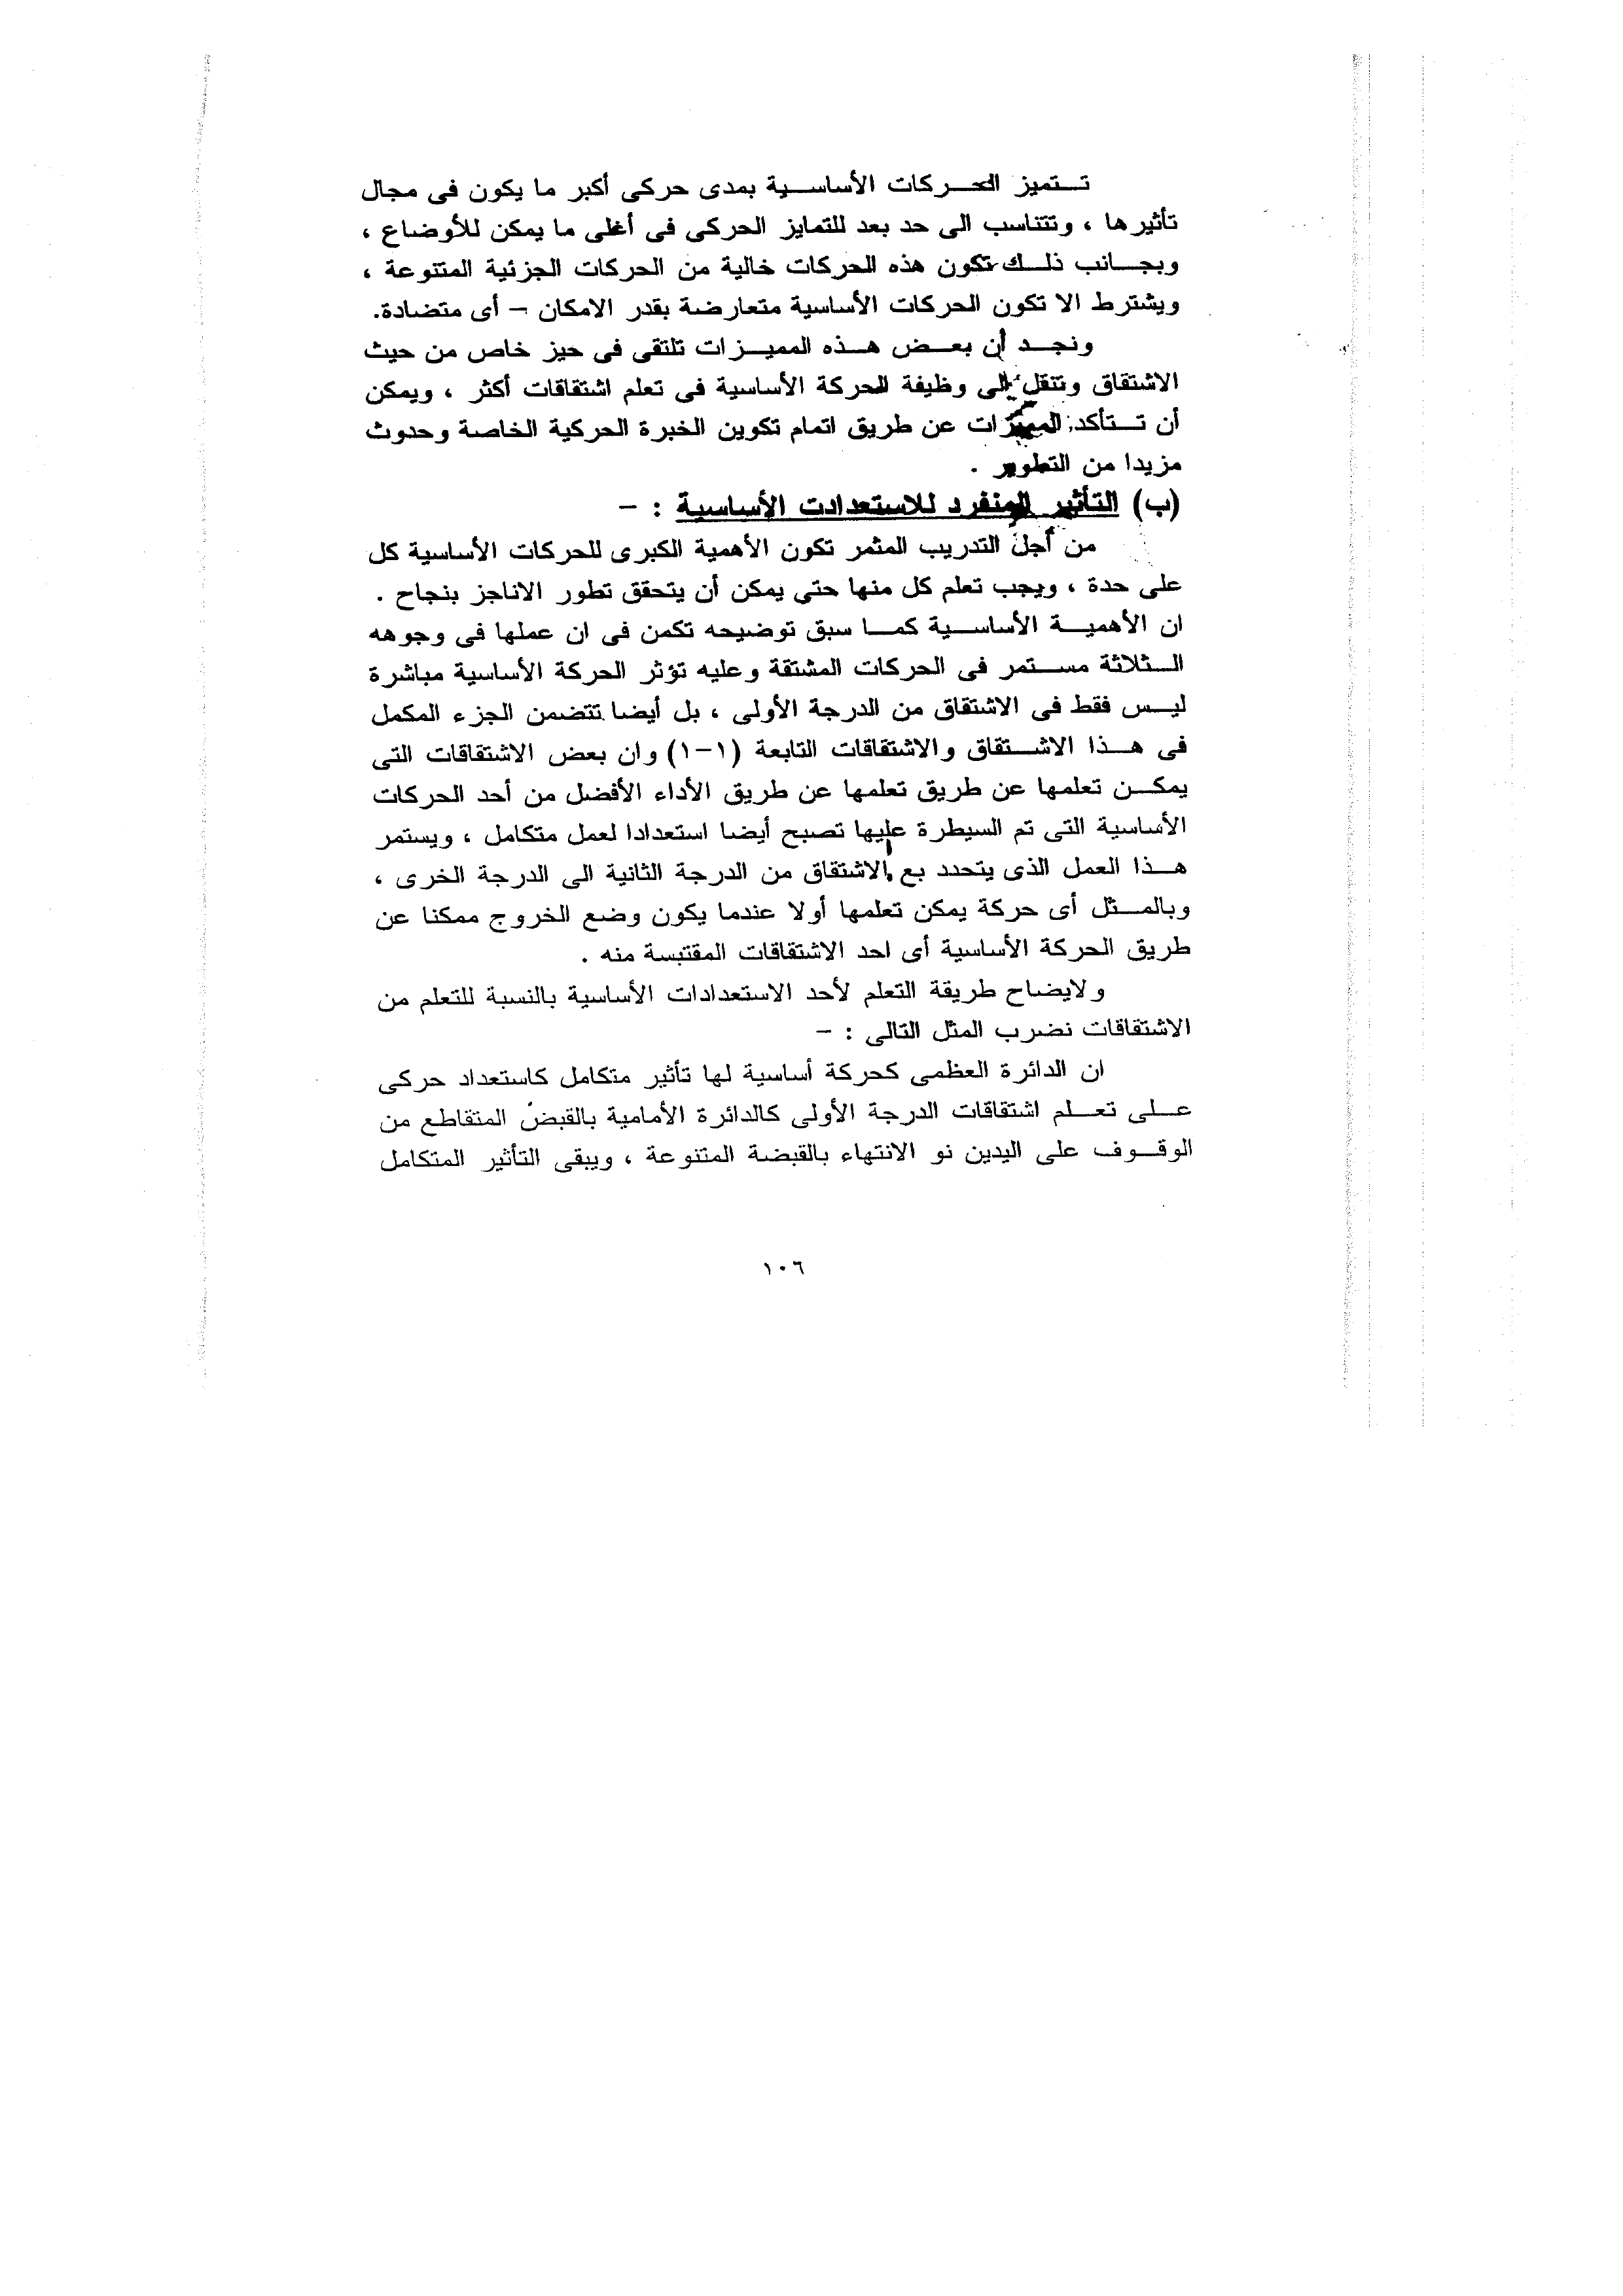 تتميز الحركات الأساسية بمدى حركى أكبر ما يكون فى مجال
تأثيرها ، وتتناسب الى حد بعد للتمايز الحركى فى أغلى ما يمكن للأوضاع ،
وبجانب ذلك تكون هذه الحركات خالية من الحركات الجزئية المتنوعة ،
ويشترط الا تكون الحركات الأساسية متعارضة بقدر الامكان – أى متضادة.
ونجد أن بعض هذه المميزات تلتقى فى حيز خاص من حيث
الاشتقاق وتنقل إلى وظيفة الحركة الأساسية فى تعلم اشتقاقات أكثر ، ويمكن
أن تتأكد المميزات عن طريق اتمام تكوين الخبرة الحركية الخاصة وحدوث
مزيدا من التطوير .
(ب) التأثير المنفرد للاستعدادت الأساسية : –
من أجل التدريب المثمر تكون الأهمية الكبرى للحركات الأساسية كل
على حدة ، ويجب تعلم كل منها حتى يمكن أن يتحقق تطور الاناجز بنجاح .
ان الأهمية الأساسية كما سبق توضيحه تكمن فى ان عملها فى وجوهه
الثلاثة مستمر فى الحركات المشتقة وعليه تؤثر الحركة الأساسية مباشرة
ليس فقط فى الاشتقاق من الدرجة الأولى ، بل أيضا تتضمن الجزء المكمل
فى هذا الاشتقاق والاشتقاقات التابعة (١-١) وان بعض الاشتقاقات التى
يمكن تعلمها عن طريق تعلمها عن طريق الأداء الأفضل من أحد الحركات
الأساسية التى تم السيطرة عليها تصبح أيضا استعدادا لعمل متكامل ، ويستمر
هذا العمل الذى يتحدد بع الاشتقاق من الدرجة الثانية الى الدرجة الخرى ،
وبالمثل أى حركة يمكن تعلمها أولا عندما يكون وضع الخروج ممكنا عن
طريق الحركة الأساسية أى احد الاشتقاقات المقتبسة منه .
ولايضاح طريقة التعلم لأحد الاستعدادات الأساسية بالنسبة للتعلم من
الاشتقاقات نضرب المثل التالى : –
ان الدائرة العظمى كحركة أساسية لها تأثير متكامل كاستعداد حركى
على تعلم اشتقاقات الدرجة الأولى كالدائرة الأمامية بالقبض المتقاطع من
الوقوف على اليدين نو الانتهاء بالقبضة المتنوعة ، ويبقى التأثير المتكامل
١٠٦